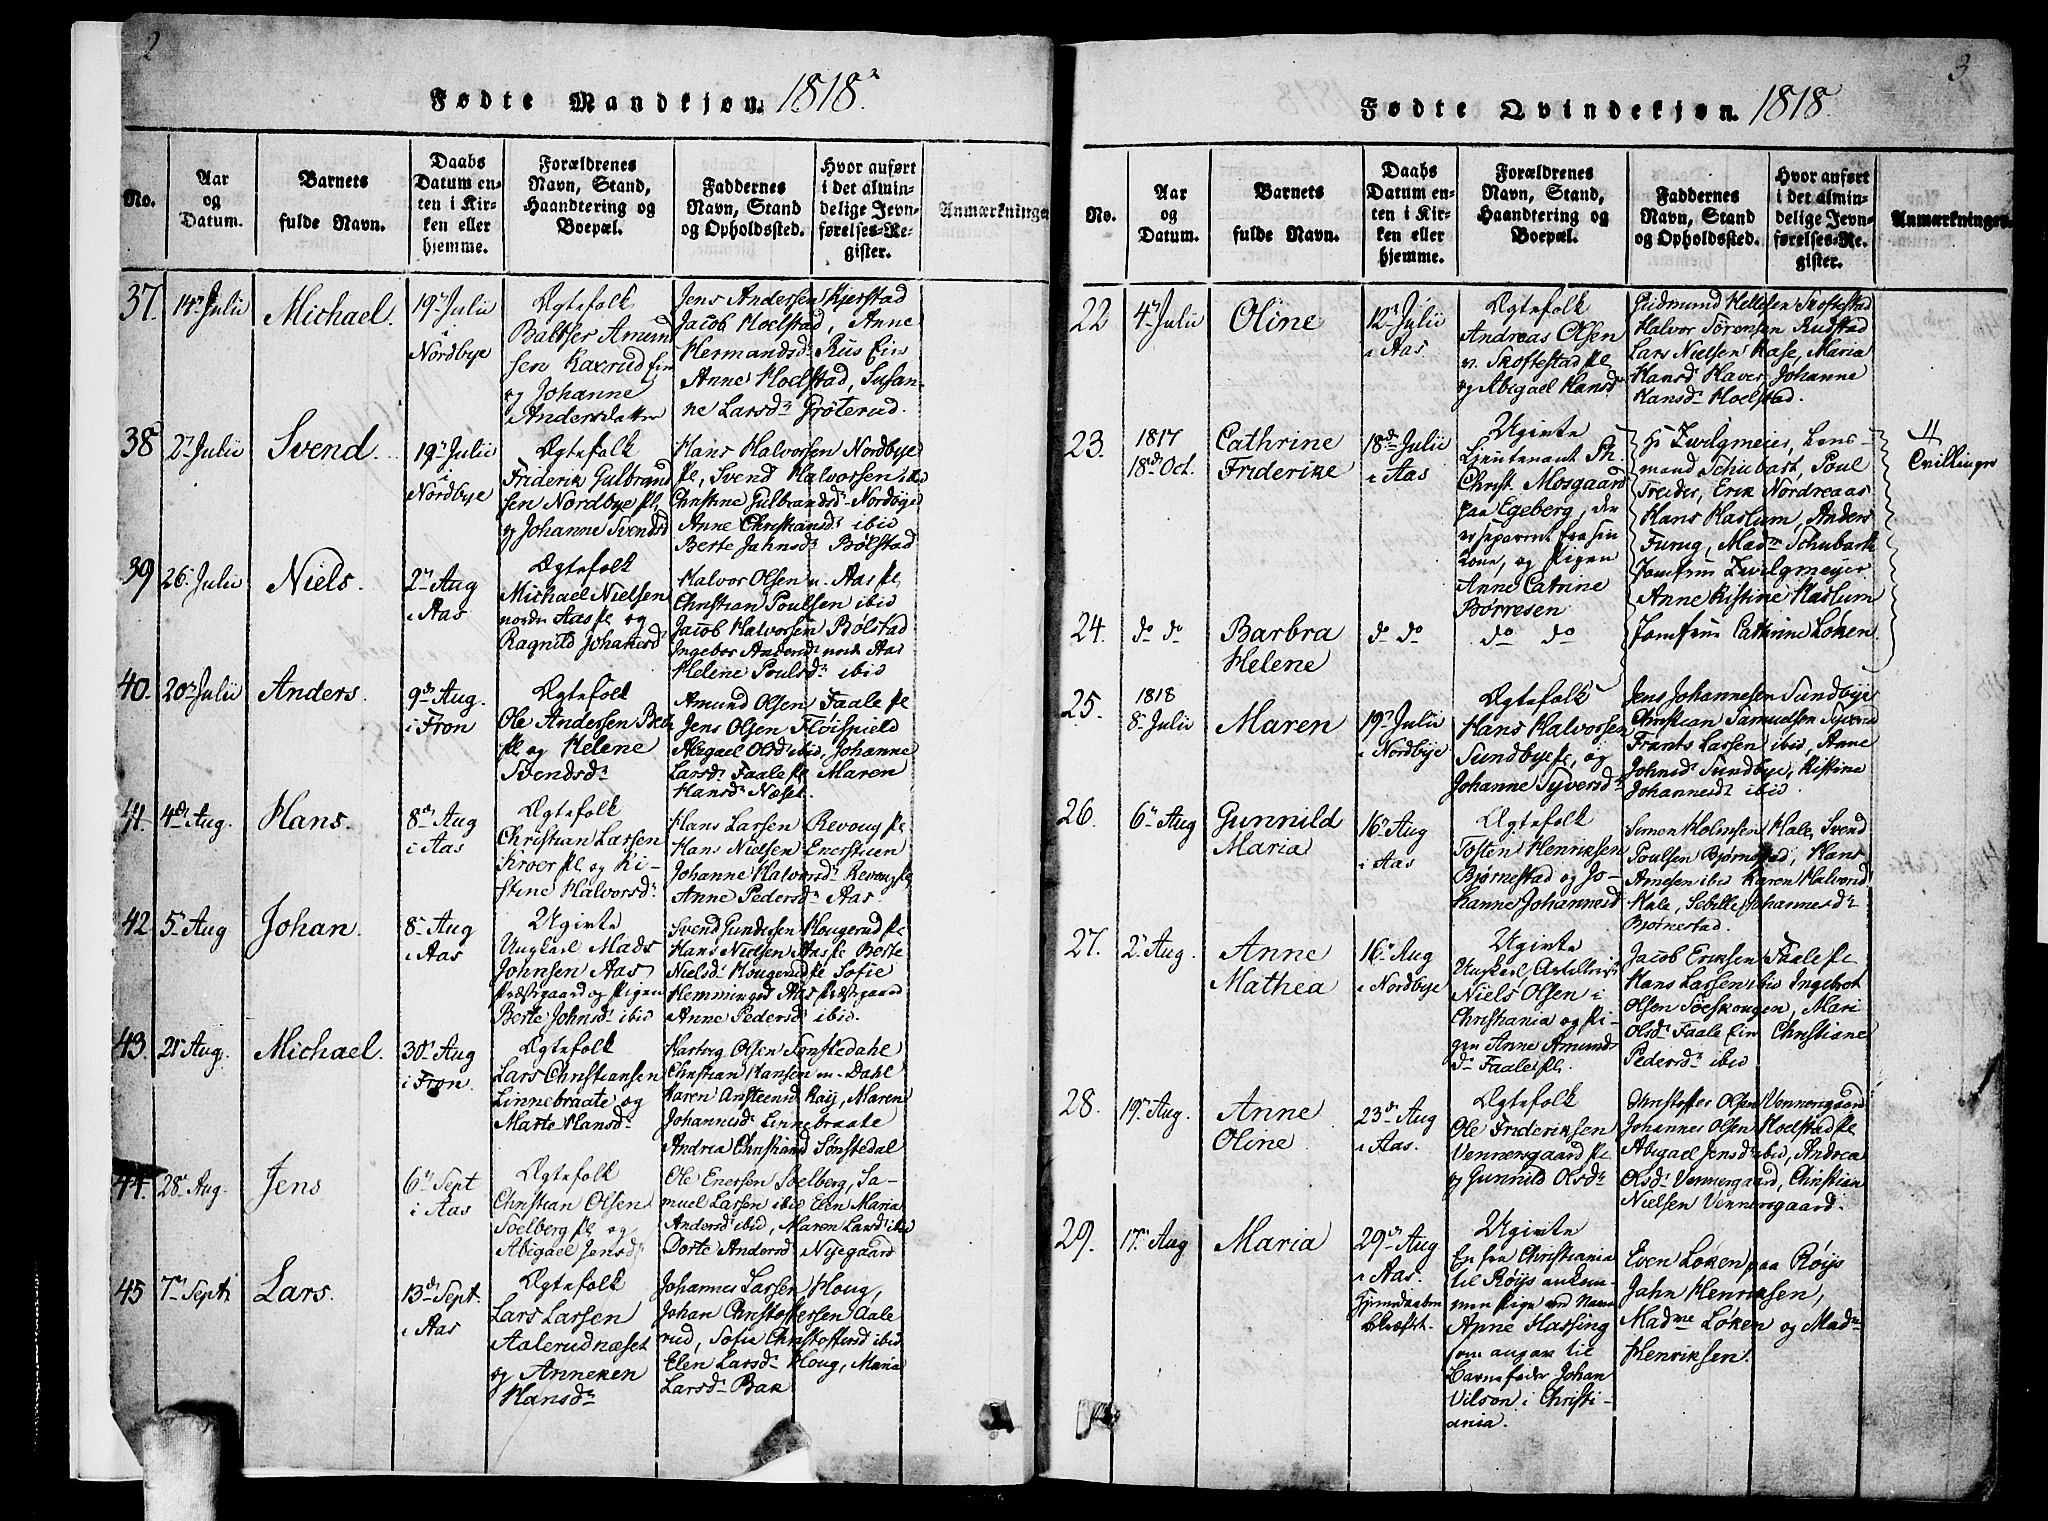 2
Fødte Mandkjøn. 1818.
No.
Aar
og
Datum.
Barnets
fulde Navn.
Daabs
Datum en-
ten i Kir-
ken eller
hjemme.
Forældrenes
Navn, Stand,
Haandtering og
Boepæl.
Faddernes
Navn, Stand
og Opholdssted.
Hvor anført
i det almin-
delige Jevn-
førelses-Re-
gister.
Anmærkninger
37.
14 Julii
Michael.
19 Julii
i
Nordbye
Ægtefolk
Baltser Amund
sen Kaxrud ein
og Johanne
Andersdatter
Jens Andersen Kjerstad
Jacob Moelstad, Anne
Hermandsd. Rus Ein
Anne Moelstad, Susan-
ne Larsd. Grøterud.
38
2 Julii
Svend
19 Julii
i
Nordbye
Ægtefolk
Friderik Gulbrand
sen Nordbye pl.
og Johanne Svendsd
Hans Halvorsen Nordbye
pl, Svend Halvorsen ibid
Christine Gulbrandsd. Nordbye
Anne Christiansd. ibid
Berte Jahnsd. Bølstad
39
26 Julii
Niels.
2 Aug
i Aas
Ægtefolk
Michael Nielsen
nordre Aas pl og
Ragnild Johannesd
Halvor Olsen n. Aas pl
Christian Poulsen ibid
Jacob Halvorsen Bølstad
Ingebor Andersd. nordr Aas
Helene Poulsd. ibid
40.
20 Julii
Anders.
9 Aug.
i Fron
Ægtefolk
Ole Andersen
pl og Helene
Svendsd.
Amund Olsen Faale pl
Jens Olsen Fløispield
Abigael Olsd ibid, Johanne
Larsd. Faale pl Maren
Hansd. Næset.
41.
4 Aug.
Hans.
8 Aug
i Aas
Ægtefolk
Christian Larsen
Kroer pl og Ki-
stine Halvorsd.
Hans Larsen Revoug pl
Hans Nielsen Enerstuen
Johanne Halvorsd. Revoug pl
Anne Pedersd. Aas.
42
5 Aug
Johan.
8 Aug
i Aas
Ugivte
Ungkarl Mads
Johnsen Aas
Præstegaard og Pigen
Berte Johnsd. ibid
Svend Gundersen Hougerud pl
Hans Nielsen Aas pl Berte
Nielsd. Hougerud pl Sofie
Hemmingsd Aas Præstgaard
Anne Pedersd. ibid.
43.
21 Aug.
Michael.
30 Aug
i Fron.
Ægtefolk
Lars Christiansen
Linnebraate og
Marte Hansd.
Hartvig Olsen Sønstedahl
Christian Hansen m. Dahl
Karen Anstensd Kaij, Maren
Johannesd. Linnebraate
Andrea Christiansd Sønstedal
44.
28 Aug.
Jens
6 Sept
i Aas
Ægtefolk
Christian Olsen
Soelberg pl og
Abigael Jensd.
Ole Enersen Soelberg, Sa-
muel Larsen ibid Elen Maria
Andersd ibid, Maren Larsd ibid
Dorte Andersd Nygaard
45
7 Sept
Lars.
13 Sept.
i Aas
Ægtefolk
Lars Larsen
Aalerudnæset
og Anneken
Hansd.
Johannes Larsen Houg,
Johan Christoffersen Aale
rud, Sofie Christoffersd ibid
Elen Larsd. Houg, Maria
Larsd. Bak
3
Fødte Qvindekjøn. 1818.
No.
Aar
og
Datum.
Barnets
fulde Navn.
Daabs
Datum en-
ten i Kir-
ken eller
hjemme.
Forældrenes
Navn, Stand,
Haandtering og
Boepæl.
Faddernes
Navn, Stand
og Opholdssted.
Hvor anført
i det almin-
delige Jevn-
førelses-Re-
gister.
Anmærkninger.
22
4 Julii
Oline
12 Julii
i Aas
Ægtefolk
Andreas Olsen
n. Skoftestad pl
og Abigael Hansd
Gudmund Hellesen Skoftestad
Halvor Sørensen Rudstad
Lars Nielsen Kase, Maria
Hansd. Haver Johanne
Hansd. Moelstad.
23.
1817
18 Oct.
Cathrine
Friderike
18 Julii
i Aas
Ugivte
Lieutenant Th.
Christ. Mosgaard
paa Egeberg, der
er separeret fra sin
Kone, og Pigen
Anne Catrine
Børresen
Hr Zwilgmeier, Lens-
mand Schubart, Poul
Treider, Erik Nordreaas
Hans Haslum, Anders
Furug, Mad. Schubart
Jomfru Zwilgmeyer
Anne Kistine Haslum
Jomfrue Cathrine Løken.
Tvillinger
24.
do do
Barbra
Helene
do do
do do
25.
1818
8 Julii
Maren
19 Julii
i Nordbye
Ægtefolk
Hans Halvorsen
Sundbye pl, og
Johanne Syversd.
Jens Johannesen Sundbye
Christian Samuelsen Syverud
Frants Larsen ibid, Anne
Johnsd. Sundbye, Kistine
Johannesd. ibid.
26.
6 Aug
Gunnild
Maria
16 Aug
i Aas
Ægtefolk
Tosten Henriksen
Bjørnestad og Jo-
hanne Johannesd
Simen Holmsen Hale, Svend
Poulsen Bjørnestad, Hans
Arnesen ibid Karen Halvorsd
Hale, Sebille Johannesd.
Bjørnestad.
27.
2 Aug.
Anne
Mathea
16 Aug
i Nordbye
Ugivte
Ungkarl Artillerist
Niels Olsen i
Christiania og Pi-
gen Anne Amunds
d. Faale pl.
Jacob Eriksen Faale pl
Hans Larsen ibid Ingebret
Olsen Soeskougen, Mari
Olsd. Faale Ein Christiane
Pedersd. ibid
28.
19 Aug.
Anne
Oline
23 Aug
i Aas.
Ægtefolk
Ole Frideriksen
Vennersgaard pl
og Gunnild Olsd.
Christoffer Olsen Vennersgaard
Johannes Olsen Moelstad pl
Abigael Jensd ibid, Andrea
Olsd. Vennersgaard, Christian
Nielsen Vennersgaard.
29.
17 Aug
Maria
29 Aug
i Aas.
Hjemdaaben
bekræft.
Ugivte
En fra Christiania
til Røijs ankom-
men Pige ved Navn
Anne Hassing
som angav til
Barnefader Johan
Vilson i Christi-
ania.
Even Løken paa Røijs
Jahn Henriksen,
Madme Løken og Madme
Henriksen.